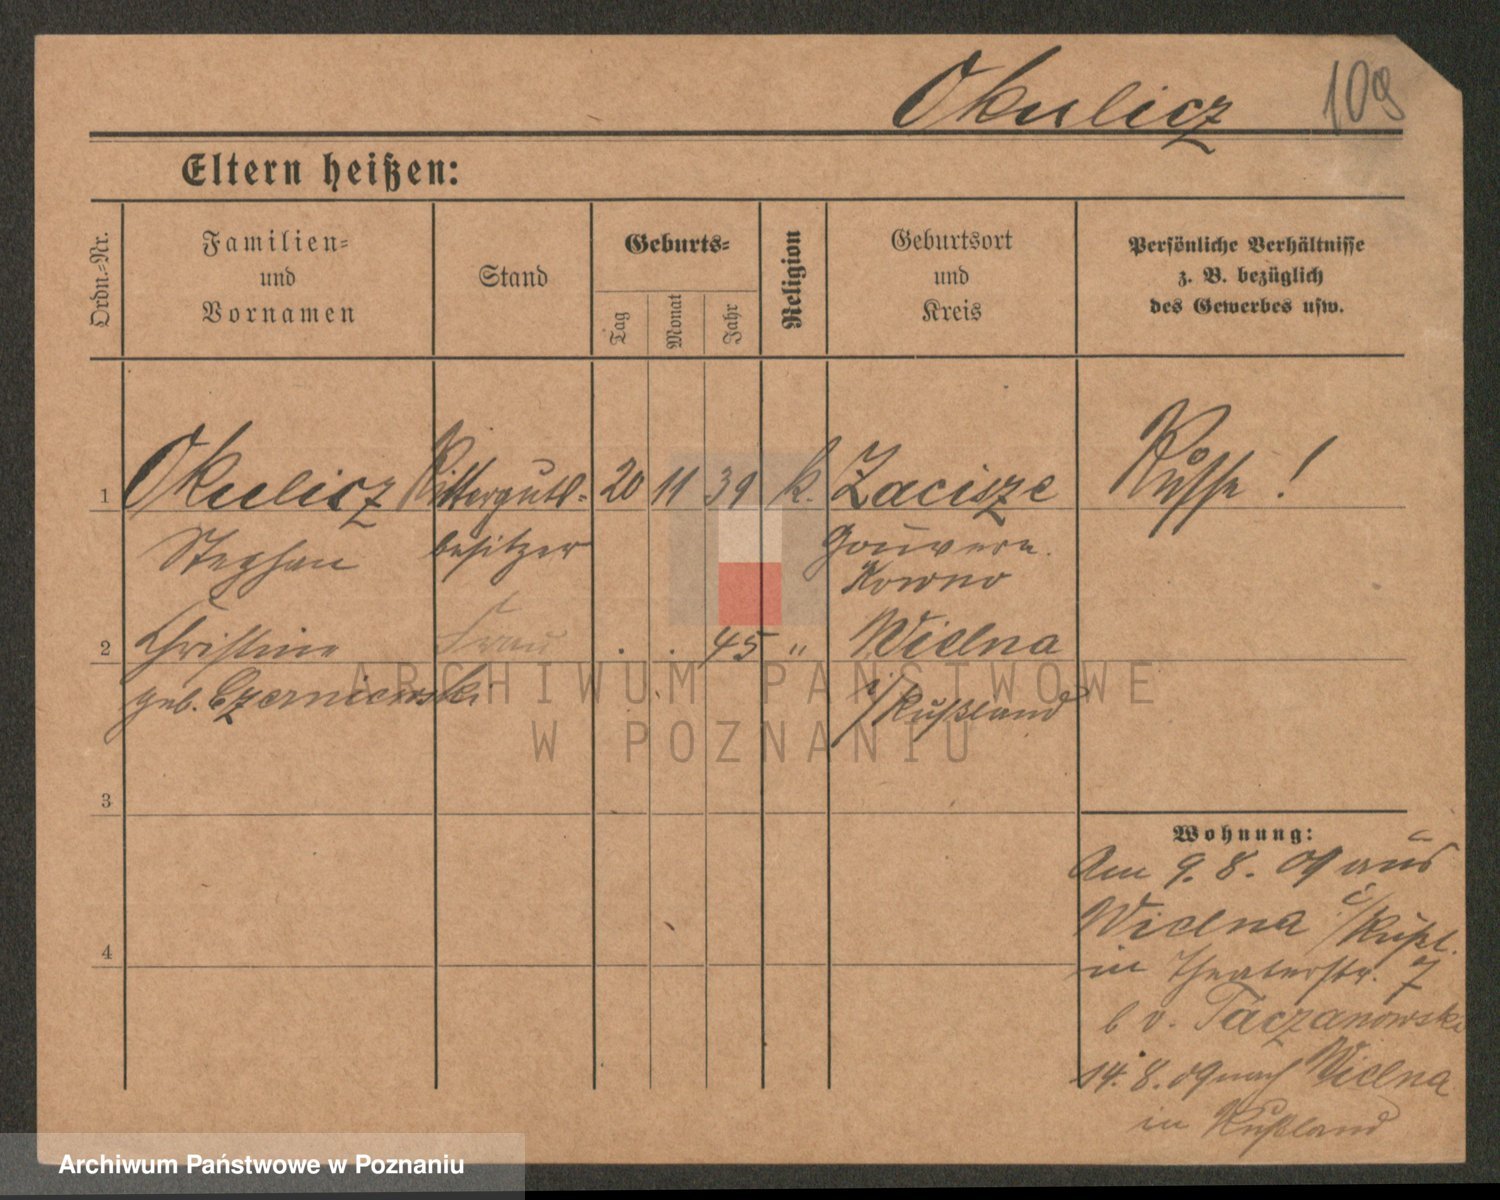 Okulicz 109
Eltern heißen:
Ordn.=Nr.
Familien=
und
Vornamen
Stand
Geburts=
Tag
Monat
Jahr
Religion
Geburtsort
und
Kreis
Persönliche Verhältnisse
z. B. bezüglich
des Gewerbes usw.
1 Okulicz Ritterguts= 20 11 39 k. Zacisze Russe!
Stephan besitzer Gouvern.
Kowno
2 Christine Frau . . 45 " Wielna
geb. Czerniewski i/Rußland
3
4
Wohnung:
Am 9. 8. 09 aus
Wielna i/Rußl.
in Theaterstr. 7
b v. Taczanowski
14. 8. 09 nach Wielna
in Rußland
ARCHIWUM PAŃSTWOWE
W POZNANIU
Archiwum Państwowe w Poznaniu